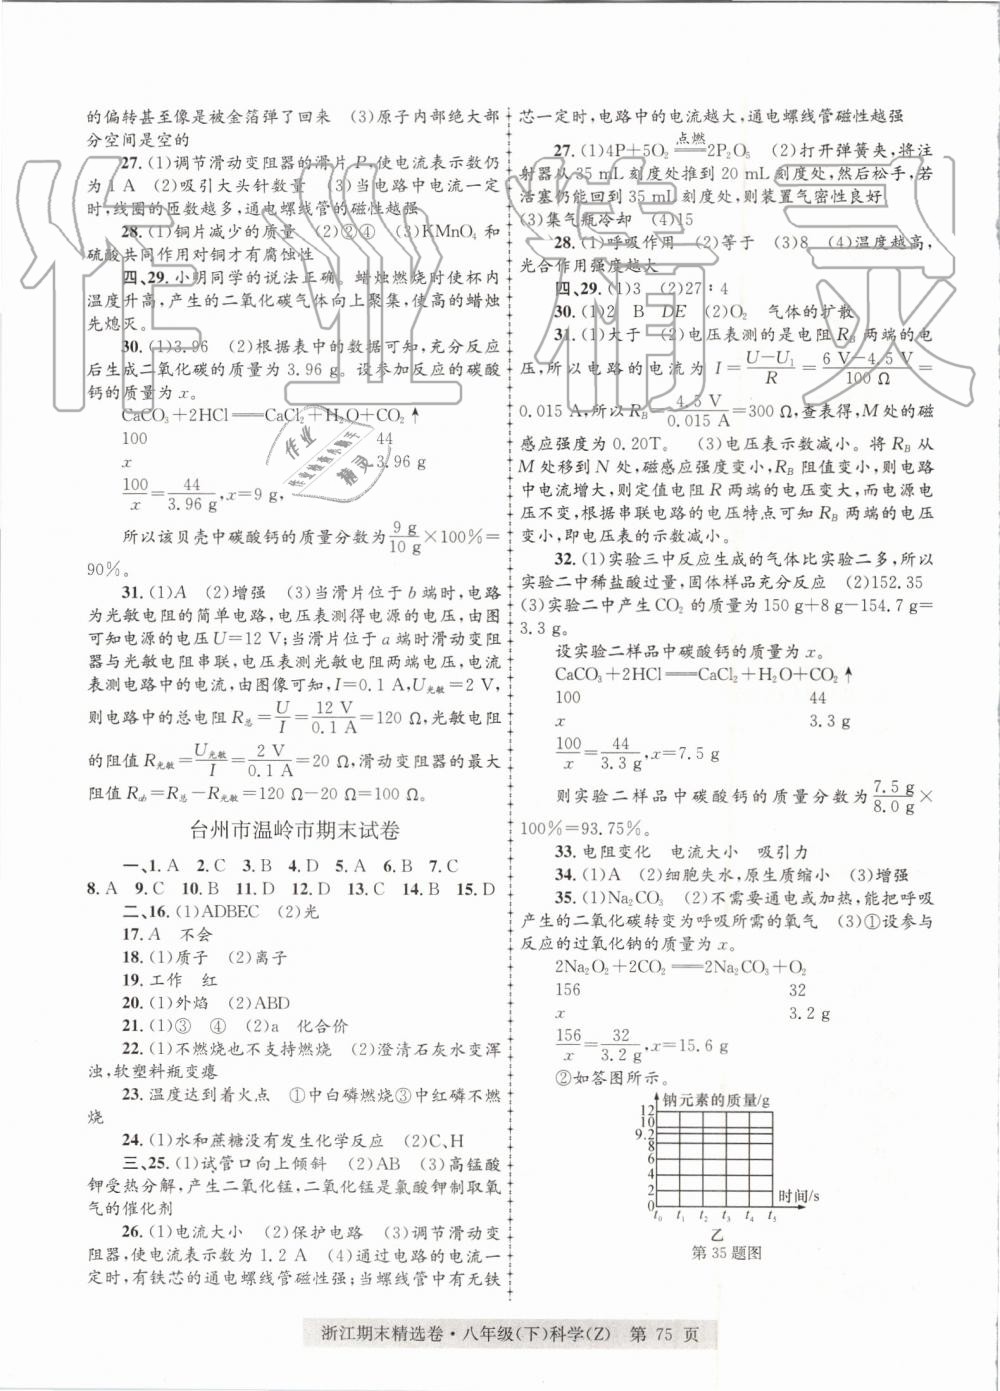 的偏转甚至像是被金箔弹了回来 (3)原子内部绝大部
分空间是空的
27.(1)调节滑动变阻器的滑片P,使电流表示数仍
为1 A (2)吸引大头针数量 (3)当电路中电流一定
时,线圈的匝数越多,通电螺线管的磁性越强
28.(1)铜片减少的质量 (2)②④ (3)KMnO₄和
硫酸共同作用对铜才有腐蚀性
四、29.小明同学的说法正确。蜡烛燃烧时使杯内
温度升高,产生的二氧化碳气体向上聚集,使高的蜡烛
先熄灭。
30.(1)3.96 (2)根据表中的数据可知,充分反应
后生成二氧化碳的质量为3.96 g。设参加反应的碳酸
钙的质量为x。
CaCO₃+2HCl══CaCl₂+H₂O+CO₂↑
100 44
x 3.96 g
100/x=44/3.96 g,x=9 g,
所以该贝壳中碳酸钙的质量分数为9 g/10 g×100%=
90%。
31.(1)A (2)增强 (3)当滑片位于b端时,电路
为光敏电阻的简单电路,电压表测得电源的电压,由图
可知电源的电压U=12 V;当滑片位于a端时滑动变阻
器与光敏电阻串联,电压表测光敏电阻两端电压,电流
表测电路中的电流,由图像可知,I=0.1 A,U光敏=2 V,
则电路中的总电阻R总=U/I=12 V/0.1 A=120 Ω,光敏电阻
的阻值R光敏=U光敏/I=2 V/0.1 A=20 Ω,滑动变阻器的最大
阻值R滑=R总-R光敏=120 Ω-20 Ω=100 Ω。
台州市温岭市期末试卷
一、1.A 2.C 3.B 4.D 5.A 6.B 7.C
8.A 9.C 10.B 11.D 12.D 13.C 14.B 15.D
二、16.(1)ADBEC (2)光
17.A 不会
18.(1)质子 (2)离子
19.工作 红
20.(1)外焰 (2)ABD
21.(1)③ ④ (2)a 化合价
22.(1)不燃烧也不支持燃烧 (2)澄清石灰水变浑
浊,软塑料瓶变瘪
23.温度达到着火点 ①中白磷燃烧③中红磷不燃
烧
24.(1)水和蔗糖没有发生化学反应 (2)C、H
三、25.(1)试管口向上倾斜 (2)AB (3)高锰酸
钾受热分解,产生二氧化锰,二氧化锰是氯酸钾制取氧
气的催化剂
26.(1)电流大小 (2)保护电路 (3)调节滑动变
阻器,使电流表示数为1.2 A (4)通过电路的电流一
定时,有铁芯的通电螺线管磁性强;当螺线管中有无铁
芯一定时,电路中的电流越大,通电螺线管磁性越强
27.(1)4P+5O₂══点燃══2P₂O₅ (2)打开弹簧夹,将注
射器从35 mL刻度处推到20 mL刻度处,然后松手,若
活塞仍能回到35 mL刻度处,则装置气密性良好
(3)集气瓶冷却 (4)15
28.(1)呼吸作用 (2)等于 (3)8 (4)温度越高,
光合作用强度越大
四、29.(1)3 (2)27∶4
30.(1)2 B DE (2)O₂ 气体的扩散
31.(1)大于 (2)电压表测的是电阻R_B两端的电
压,所以电路的电流为I=U-U₁/R=6 V-4.5 V/100 Ω=
0.015 A,所以R_B=4.5 V/0.015 A=300 Ω,查表得,M处的磁
感应强度为0.20T。 (3)电压表示数减小。将R_B从
M处移到N处,磁感应强度变小,R_B阻值变小,则电路
中电流增大,则定值电阻R两端的电压变大,而电源电
压不变,根据串联电路的电压特点可知R_B两端的电压
变小,即电压表的示数减小。
32.(1)实验三中反应生成的气体比实验二多,所以
实验二中稀盐酸过量,固体样品充分反应 (2)152.35
(3)实验二中产生CO₂的质量为150 g+8 g-154.7 g=
3.3 g。
设实验二样品中碳酸钙的质量为x。
CaCO₃+2HCl══CaCl₂+H₂O+CO₂↑
100 44
x 3.3 g
100/x=44/3.3 g,x=7.5 g
则实验二样品中碳酸钙的质量分数为7.5 g/8.0 g×
100%=93.75%。
33.电阻变化 电流大小 吸引力
34.(1)A (2)细胞失水,原生质缩小 (3)增强
35.(1)Na₂CO₃ (2)不需要通电或加热,能把呼吸
产生的二氧化碳转变为呼吸所需的氧气 (3)①设参与
反应的过氧化钠的质量为x。
2Na₂O₂+2CO₂══2Na₂CO₃+O₂
156 32
x 3.2 g
156/x=32/3.2 g,x=15.6 g
②如答图所示。
钠元素的质量/g
12
10
9.2
8
6
4
2
0
t₀ t₁ t₂ t₃ t₄ t₅
时间/s
乙
第35题图
浙江期末精选卷·八年级(下)科学(Z) 第 75 页
作业精灵
作业
精灵